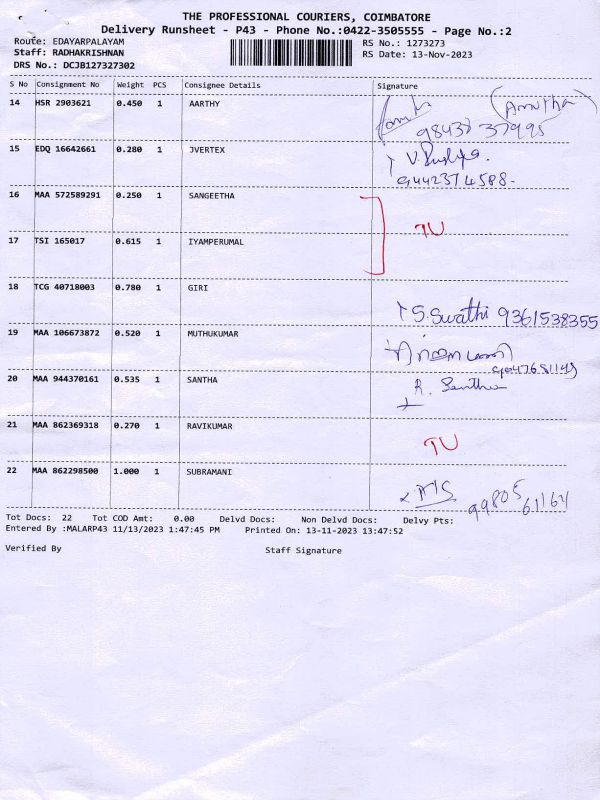 THE PROFESSIONAL COURIERS, COIMBATORE
Delivery Runsheet - P43 - Phone No.:0422-3505555 - Page No.:2
Route: EDAYARPALAYAM RS No.: 1273273
Staff: RADHAKRISHNAN RS Date: 13-Nov-2023
DRS No.: DCJB127327302
S No Consignment No Weight PCS Consignee Details Signature
14 HSR 2903621 0.450 1 AARTHY (Amutha)
15 EDQ 16642661 0.280 1 JVERTEX
9442374588-
16 MAA 572589291 0.250 1 SANGEETHA
TU
17 TSI 165017 0.615 1 IYAMPERUMAL
18 TCG 40718003 0.780 1 GIRI
S. Swathi 9361538355
19 MAA 106673872 0.520 1 MUTHUKUMAR
20 MAA 944370161 0.535 1 SANTHA R. Santha
21 MAA 862369318 0.270 1 RAVIKUMAR TU
22 MAA 862298500 1.000 1 SUBRAMANI
99805 61164
Tot Docs: 22 Tot COD Amt: 0.00 Delvd Docs: Non Delvd Docs: Delvy Pts:
Entered By :MALARP43 11/13/2023 1:47:45 PM Printed On: 13-11-2023 13:47:52
Verified By Staff Signature